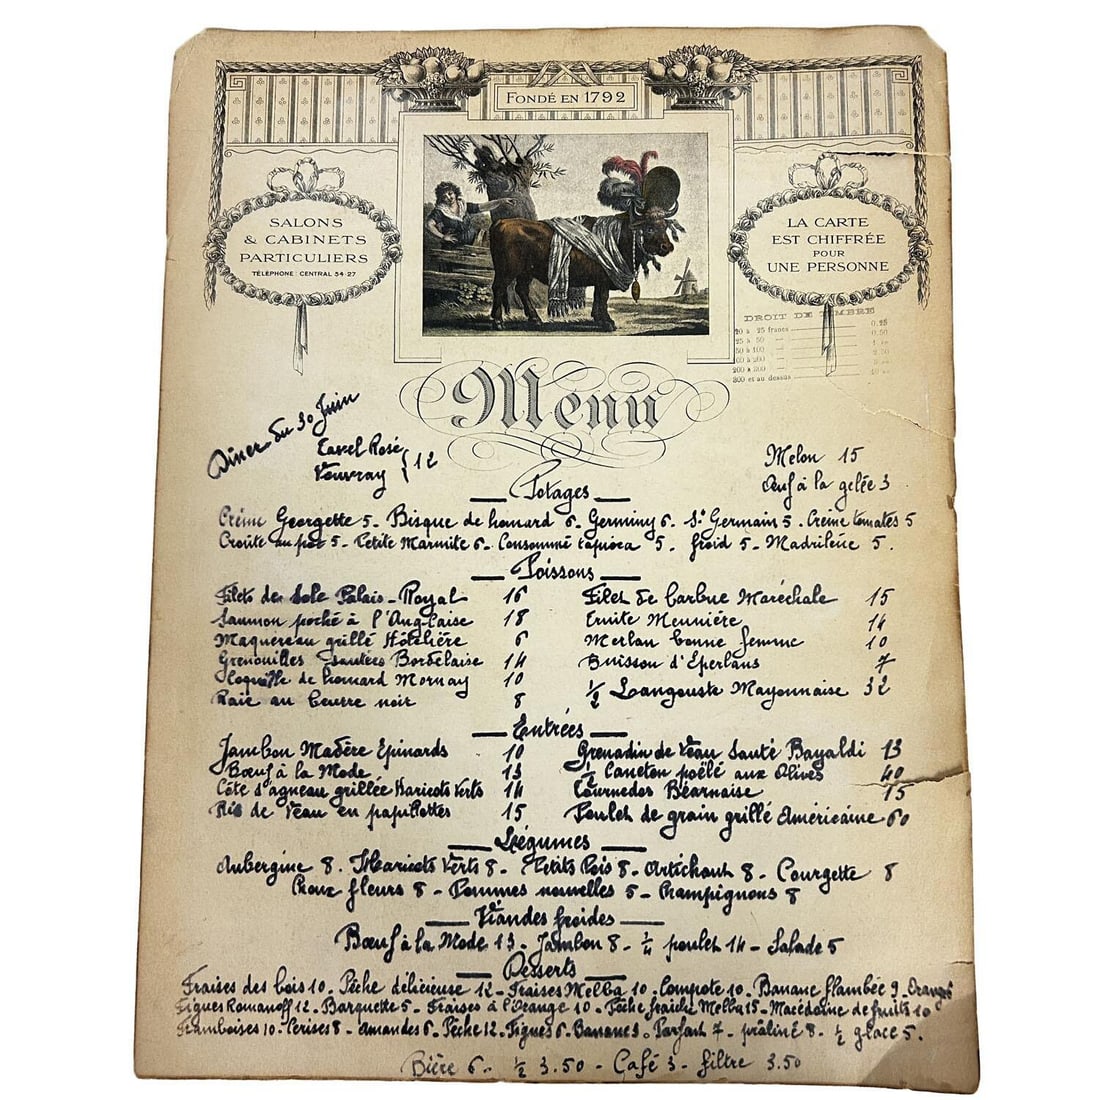 FONDÉ EN 1792
SALONS
& CABINETS
PARTICULIERS
TÉLÉPHONE: CENTRAL 54-27
LA CARTE
EST CHIFFRÉE
POUR
UNE PERSONNE
DROIT DE TIMBRE
10 à 25 francs 0.25
25 à 50 0.50
50 à 100 1
100 à 200 2.50
200 à 300 5
300 et au dessus 10
Menu
Dîner du 30 Juin
Tavel Rosé
Vouvray } 12
Melon 15
Œuf à la gelée 3
Potages
Crème Georgette 5 - Bisque de homard 6 - Germiny 6 - St Germain 5 - Crème tomates 5
Croûte au pot 5 - Petite Marmite 6 - Consommé tapioca 5 - froid 5 - Madrilène 5.
Poissons
Filets de Sole Palais-Royal 16
Saumon poché à l'Anglaise 18
Maquereau grillé Hôtelière 6
Grenouilles Sautées Bordelaise 14
Coquille de homard Mornay 10
Raie au beurre noir 8
Filet de barbue Maréchale 15
Truite Meunière 14
Merlan bonne femme 10
Buisson d'Eperlans 7
½ Langouste Mayonnaise 32
Entrées
Jambon Madère Epinards 10
Bœuf à la Mode 13
Côte d'agneau grillée Haricots Verts 14
Ris de Veau en papillottes 15
Grenadin de Veau Sauté Bayaldi 13
½ Caneton poëlé aux Olives 40
Tournedos Béarnaise 15
Poulet de grain grillé Américaine 60
Légumes
Aubergine 8. Haricots Verts 8 - Petits Pois 8 - Artichaut 8 - Courgette 8
Choux fleurs 8 - Pommes nouvelles 5 - Champignons 8
Viandes froides
Bœuf à la Mode 13 - Jambon 8 - ¼ poulet 14 - Salade 5
Desserts
Fraises des bois 10. Pêche délicieuse 12 - Fraises Melba 10. Compote 10. Banane flambée 9. Orange 6
Figues Romanoff 12 - Barquette 5 - Fraises à l'Orange 10 - Pêche fraîche Melba 15 - Macédoine de fruits 10
Framboises 10 - Cerises 8 - Amandes 6 - Pêche 12 - Figues 6 - Banane 3. Parfait 7 - praliné 8 - ½ glace 5.
Bière 6 - ½ 3.50 - Café 3 - filtre 3.50